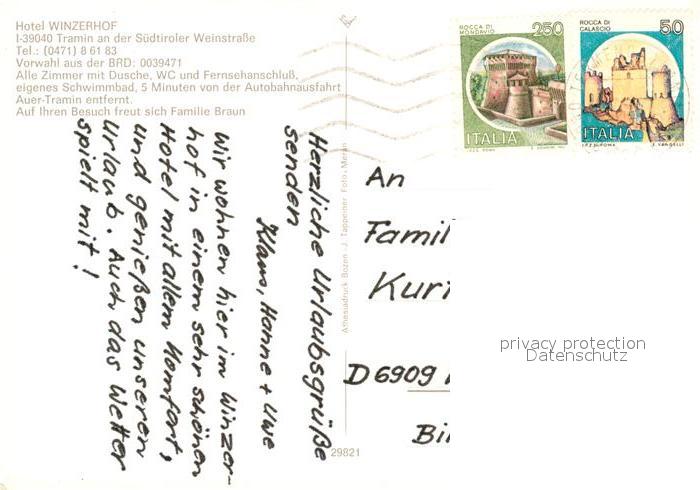 Hotel WINZERHOF
I-39040 Tramin an der Südtiroler Weinstraße
Tel.: (0471) 8 61 83
Vorwahl aus der BRD: 0039471
Alle Zimmer mit Dusche, WC und Fernsehanschluß,
eigenes Schwimmbad, 5 Minuten von der Autobahnausfahrt
Auer-Tramin entfernt.
Auf Ihren Besuch freut sich Familie Braun
Herzliche Urlaubsgrüße
senden
Klaus, Hanne + Uwe
Wir wohnen hier im Winzer-
hof in einem sehr schönen
Hotel mit allem Komfort,
und genießen unseren
Urlaub. Auch das Wetter
spielt mit!
Athesiadruck Bozen - J. Tappeiner Foto, Meran
29821
ROCCA DI
MONDAVIO
250
ITALIA
ROCCA DI
CALASCIO
50
ITALIA
An
Famil
Kur
D 6909
Bi
privacy protection
Datenschutz